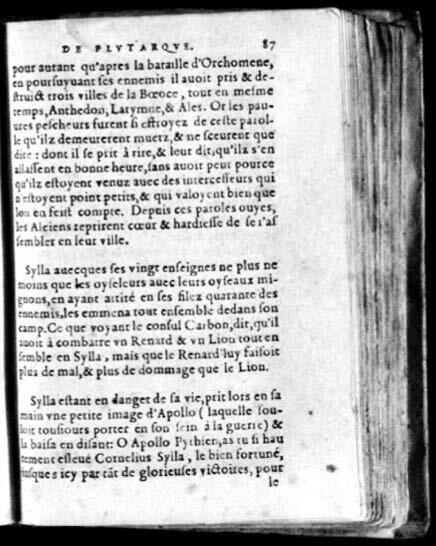 DE PLVTARQVE. 87
pour autant qu'apres la bataille d'Orchomene,
en poursuyuant ses ennemis il auoit pris & de-
struict trois villes de la Bœoce, tout en mesme
temps, Anthedon, Larymne, & Ales. Or les pau-
ures pescheurs furent si effroyez de ceste parol-
le qu'ilz demeurerent muetz, & ne sceurent que
dire : dont il se prit à rire, & leur dit, qu'ilz s'en
allassent en bonne heure, sans auoir peur pource
qu'ilz estoyent venuz auec des intercesseurs qui
n'estoyent point petits, & qui valoyent bien que
lon en feist compte. Depuis ces paroles ouyes,
les Aleiens reprirent cœur & hardiesse de se r'as
sembler en leur ville.
Sylla auecques ses vingt enseignes ne plus ne
moins que les oyseleurs auec leurs oyseaux mi-
gnons, en ayant attiré en ses filez quarante des
ennemis, les emmena tout ensemble dedans son
camp. Ce que voyant le consul Carbon, dit, qu'il
auoit à combatre vn Renard & vn Lion tout en
semble en Sylla, mais que le Renard luy faisoit
plus de mal, & plus de dommage que le Lion.
Sylla estant en danger de sa vie, prit lors en sa
main vne petite image d'Apollo ( laquelle sou-
loit tousiours porter en son sein à la guerre) &
la baisa en disant: O Apollo Pythien, as tu si hau
tement esleué Cornelius Sylla, le bien fortuné,
iusques icy par tāt de glorieuses victoires, pour
le